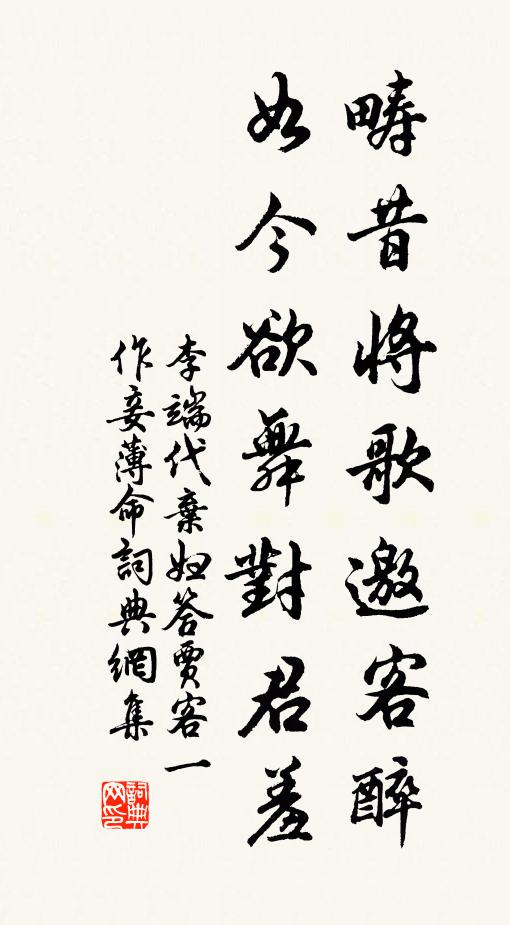 疇昔將歌邀客醉
如今欲舞對君羞
李端代棄婦答賈客一
作妾薄命詞典網集
詞典
网印